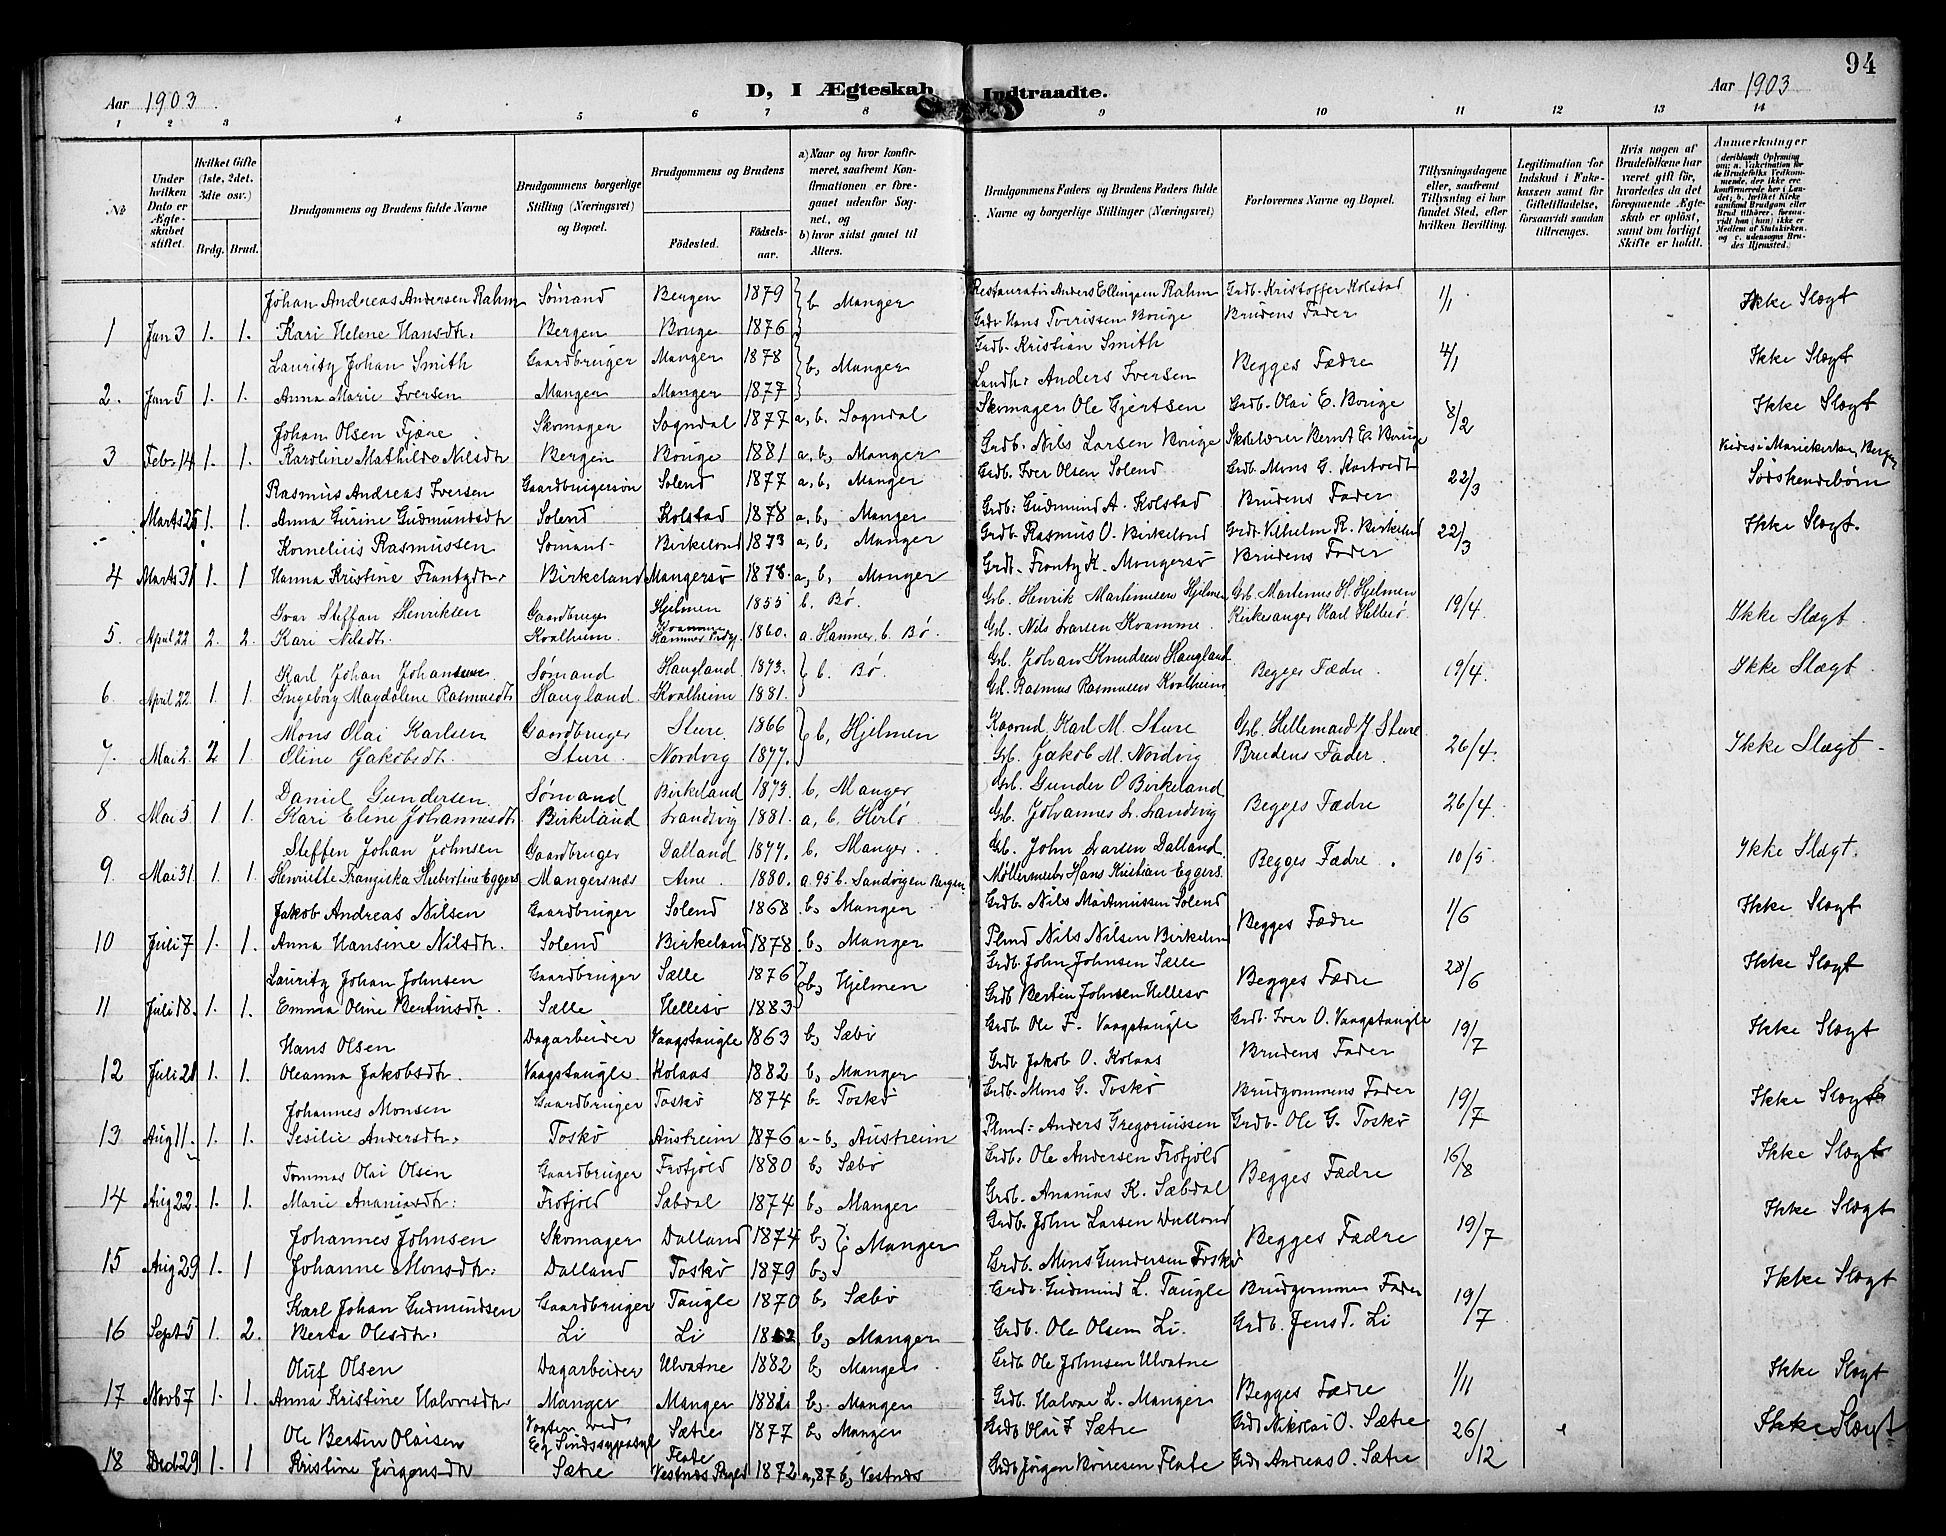 94
Aar 1903. D, I Ægteskab Indtraadte. Aar 1903
1 2 3 4 5 6 7 8 9 10 11 12 13 14
№
Under hvilken Dato er Ægteskabet stiftet.
Hvilket Gifte (1ste, 2det, 3die osv.)
Brdg. Brud.
Brudgommens og Brudens fulde Navne
Brudgommens borgerlige Stilling (Næringsvei) og Bopæl.
Brudgommens og Brudens
Födested.
Födselsaar.
a) Naar og hvor konfirmeret, saafremt Konfirmationen er foregaaet udenfor Sognet, og
b) hvor sidst gaaet til Alters.
Brudgommens Faders og Brudens Faders fulde Navne og borgerlige Stillinger (Næringsvei)
Forlovernes Navne og Bopæl.
Tillysningsdagene eller, saafremt Tillysning ei har fundet Sted, efter hvilken Bevilling.
Legitimation for Indskud i Enkekassen samt for Giftetilladelse, forsaavidt saadan tiltrænges.
Hvis nogen af Brudefolkene har været gift før, hvorledes da det foregaaende Ægteskab er oplöst, samt om lovligt Skifte er holdt.
Anmærkninger
Johan Andreas Andersen Rahm Sømand Bergen 1879 b, Manger Restauratør Anders Ellingsen Rahm Grdb. Kristoffer Kolstad 1/1 Ikke Slægt
1 Jan 3 1. 1. Kari Helene Hansdtr Bergen Bouge 1876 Bouge Brudens Fader
Lauritz Johan Smith Gaardbruger Manger 1878 b, Manger Grdb. Kristian Smith Begges Fædre 4/1 Ikke Slægt
2. Jan 5 1. 1. Anna Marie Iversen Manger Manger 1877 Landh. Anders Iversen
Johan Olsen Fjære Skomager Sogndal 1877 a, b. Sogndal Skomager Ole Gjertsen Grdb. Olai E. Bouge 8/2 Ikke Slægt
3 Febr. 14 1. 1. Karoline Mathilde Nilsdtr Bergen Bouge 1881 a, b, Manger Grdb. Nils Larsen Bouge Skolelærer Bernt E. Bouge Viedes i Mariekirken, Bergen
Rasmus Andreas Iversen Gaardbrugersøn Solend 1877 a, b, Manger Grdb. Iver Olsen Solend Grdb. Mons G. Hartvedt 22/3 Sødskendebørn
Marts 25 1. 1. Anna Gurine Gudmundsdtr Solend Kolstad 1878 a, b, Manger Grdb. Gudmund A. Kolstad Brudens Fader
Kornelius Rasmussen Sømand Birkeland 1873 a, b, Manger Grdb. Rasmus O. Birkeland Grdb. Vilhelm R. Birkeland 22/3 Ikke Slægt.
4 Marts 31 1. 1 Hanna Kristine Frantzdtr. Birkeland Mangersø 1878. a, b, Manger Grdb. Frantz K. Mangersø Brudens Fader
Ivar Steffan Henriksen Gaardbruger Hjelmen 1855 b. Bø. Grb. Henrik Martinusen Hjelmen Grb. Martenus H. Hjelmen 19/4. Ikke Slægt.
5. April 22 2. 2. Kari Nilsdtr. Kvalheim. Kvamme Hammer 1860. a. Hammer, b. Bø. Grb. Nils Larsen Kvamme. Kirkesanger Karl Hellesø.
Karl Johan Johansen. Sømand Haugland 1873. b. Bø. Grb. Johan Knudsen Haugland Begges Fædre. 19/4. Ikke Slægt
6. April 22 1. 1. Ingeborg Magdalene Rasmusdtr. Haugland. Kvalheim 1881. Grb. Rasmus Rasmusen Kvalheim
Mons Olai Karlsen Gaardbruger Sture. 1866 b, Hjelmen Kaarud Karl M. Sture Grb. Hillemaid J Sture 26/4. Ikke Slægt.
7. Mai 2. 2 1 Oline Jakobsdtr. Sture. Nordvig 1877. Grb. Jakob M. Nordvig Brudens Fader.
Daniel Gundersen Sømand Birkeland 1873. b, Manger Grb. Gunder O Birkeland Begges Fædre 26/4.
8. Mai 5 1 1. Kari Eline Johannesdtr. Birkeland Landsvig 1881. a, b. Herlø. Grb. Johannes L. Landsvig
Steffen Johan Johnsen Gaardbruger Dalland 1877. b, Manger. Grb. John Larsen Dalland. Begges Fædre. 10/5. Ikke Slægt.
9. Mai 31 1 1. Henriette Franziska Hubertine Eggers Mangersnæs Arne. 1880. a. 95 b. Sandvigen Bergen. Møllermester Hans Kristian Eggers.
Jakob Andreas Nilsen Gaardbruger Solend 1868 b, Manger Grdb. Nils Martinussen Solend Begges Fædre 1/6 Ikke Slægt
10 Juli 7 1. 1. Anna Hansine Nilsdtr. Solend Birkeland 1878. b, Manger Plmd Nils Nilsen Birkeland
Lauritz Johan Johnsen Gaardbruger Sælle 1876 b, Hjelmen Grdb. John Johnsen Sælle Begges Fædre 28/6 Ikke Slægt
11 Juli 18. 1. 1. Emma Oline Bertinsdtr. Sælle Hellesø 1883 Grdb Bertin Johnsen Hellesø
Hans Olsen Dagarbeider Vaagstaugle 1863 b, Sæbø Grdb. Ole F. Vaagstaugle Grdb. Iver O. Vaagstaugle 19/7 Ikke Slægt
12 Juli 21 1. 1. Oleanna Jakobsdtr. Vaagstaugle. Kolaas 1882 b, Manger Grdb Jakob O. Kolaas Brudens Fader
Johannes Monsen Gaardbruger Toskø 1874 b. Toskø Grdb. Mons G. Toskø Brudgommens Fader 19/7 Ikke Slægt
13 Aug 11. 1. 1. Sesilie Andersdtr. Toskø Austreim 1876 a-b, Austreim Plmd. Anders Gregoriussen Grdb. Ole G. Toskø
Tommas Olai Olsen Gaardbruger Frofjold 1880 b, Sæbø Grdb. Ole Andersen Frofjold Begges Fædre 16/8 Ikke Slægt
14 Aug 22. 1. 1. Marie Ananiasdtr. Frofjold Sæbdal 1874 b, Manger Grdb. Ananias K. Sæbdal
Johannes Johnsen Skomager Dalland 1874 b, Manger Grdb. John Larsen Dalland Begges Fædre 19/7 Ikke Slægt
15 Aug 29 1. 1 Johanne Monsdtr. Dalland Toskø 1879 b, Grdb. Mons Gundersen Toskø
Karl Johan Gudmundsen Gaardbruger Taugle 1870 b, Sæbø Grdb. Gudmund L. Taugle Brudgommens Fader 19/7 Ikke Slægt
16 Sept 5 1. 2. Berta Olesdtr. Li Li b, Manger Grdb. Ole Olsen Li. Grdb. Jens T. Li
Oluf Olsen Dagarbeider Ulvatne 1882 b, Manger Grdb. Ole Johnsen Ulvatne Begges Fædre 1/11 Ikke Slægt
17 Novb 7 1. 1 Anna Kristine Halvorsdtr. Manger Manger b. Manger Grdb. Halvor L. Manger
Ole Bertin Olaisen Vogter ved Sætre 1877 b, Manger Grdb Olai I Sætre Grdb Nikolai O. Sætre 26/12 Ikke Slægt
18 Decb 29 1. 1 Kristine Jørgensdtr Sætre Flate 1872 a, 87 b, Vestnæs Grdb Jørgen Flate Grdb Andreas O. Sætre